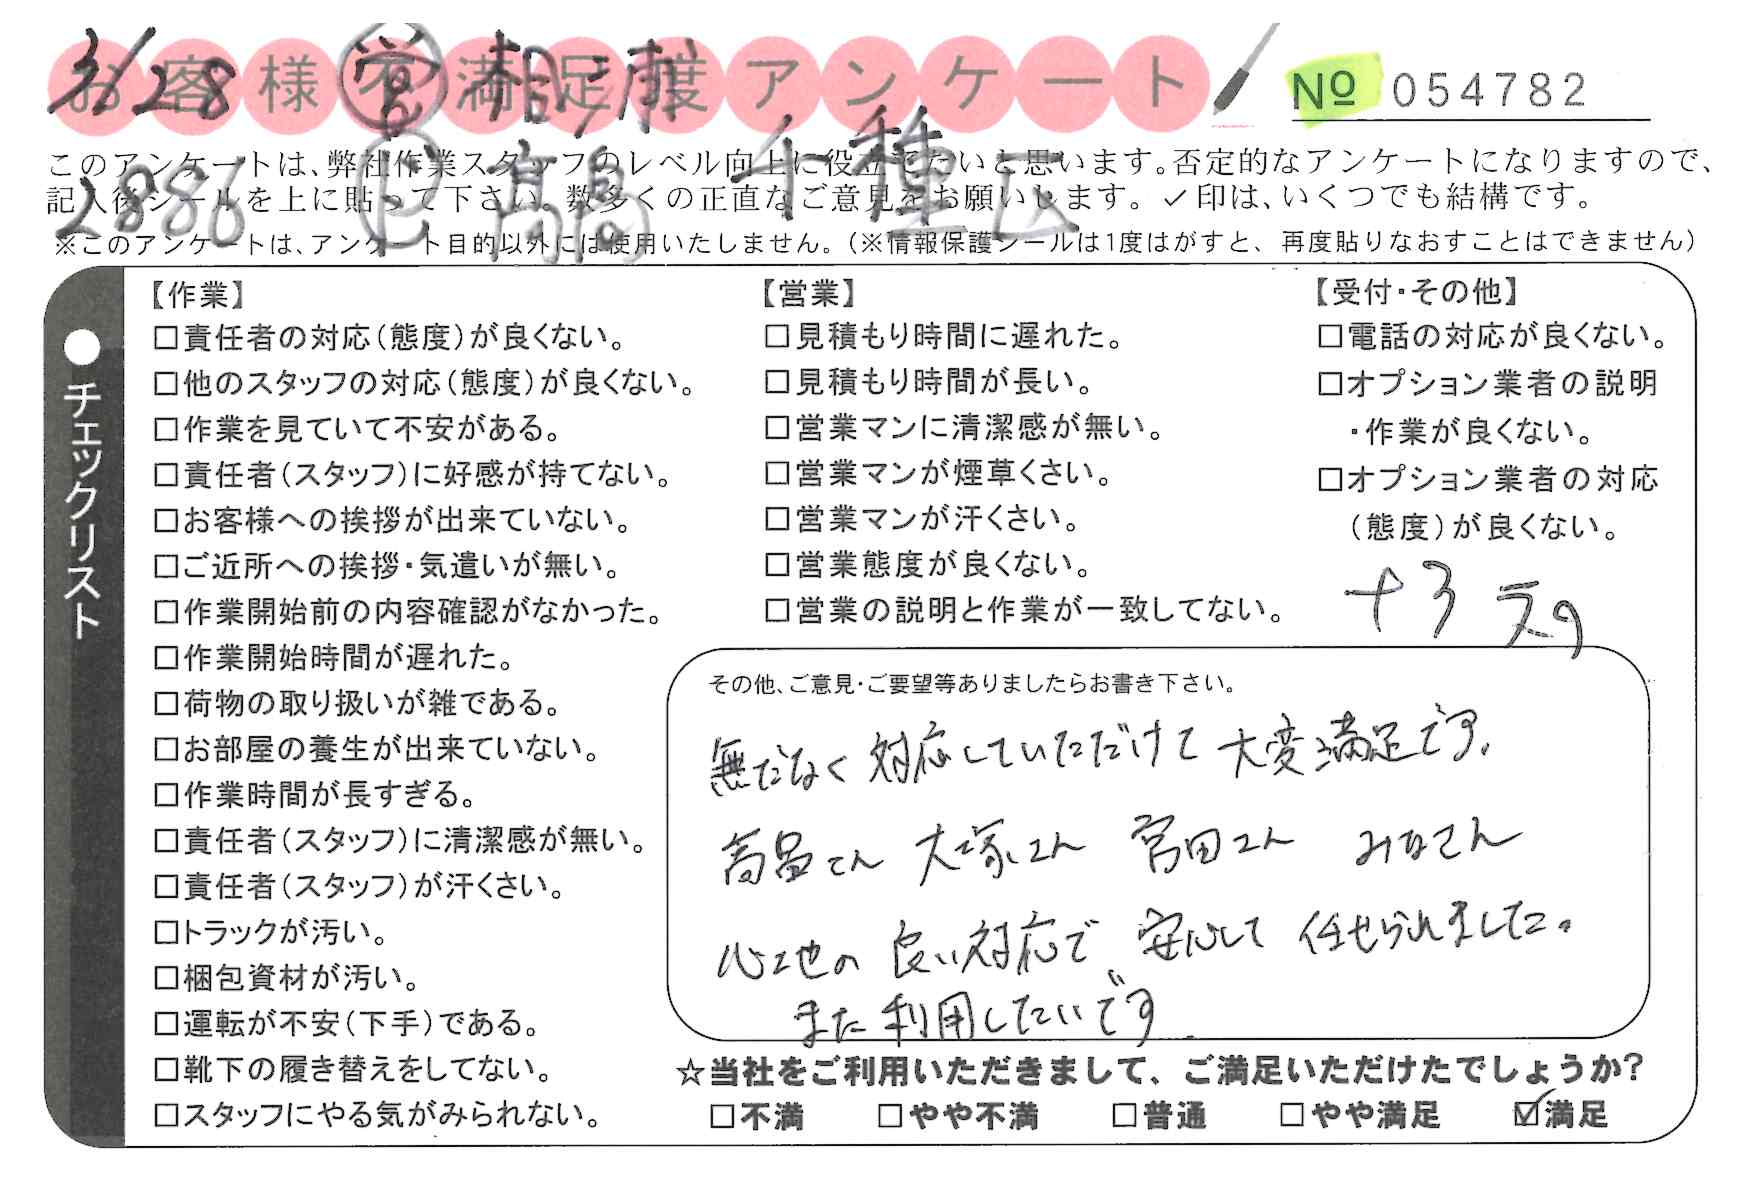 お客様不満足度アンケート
3/28 営 相浦
No 054782
このアンケートは、弊社作業スタッフのレベル向上に役立てたいと思います。否定的なアンケートになりますので、
記入後シールを上に貼って下さい。数多くの正直なご意見をお願いします。✓印は、いくつでも結構です。
2886 高島 千種区
※このアンケートは、アンケート目的以外には使用いたしません。(※情報保護シールは1度はがすと、再度貼りなおすことはできません)
●チェックリスト
【作業】
□責任者の対応(態度)が良くない。
□他のスタッフの対応(態度)が良くない。
□作業を見ていて不安がある。
□責任者(スタッフ)に好感が持てない。
□お客様への挨拶が出来ていない。
□ご近所への挨拶・気遣いが無い。
□作業開始前の内容確認がなかった。
□作業開始時間が遅れた。
□荷物の取り扱いが雑である。
□お部屋の養生が出来ていない。
□作業時間が長すぎる。
□責任者(スタッフ)に清潔感が無い。
□責任者(スタッフ)が汗くさい。
□トラックが汚い。
□梱包資材が汚い。
□運転が不安(下手)である。
□靴下の履き替えをしてない。
□スタッフにやる気がみられない。
【営業】
□見積もり時間に遅れた。
□見積もり時間が長い。
□営業マンに清潔感が無い。
□営業マンが煙草くさい。
□営業マンが汗くさい。
□営業態度が良くない。
□営業の説明と作業が一致してない。
【受付・その他】
□電話の対応が良くない。
□オプション業者の説明
・作業が良くない。
□オプション業者の対応
(態度)が良くない。
その他、ご意見・ご要望等ありましたらお書き下さい。
無だなく 対応していただけて 大変満足です。
高島さん 大塚さん 宮田さん みなさん
心地の 良い対応で 安心して 任せられました。
また利用したいです
☆当社をご利用いただきまして、ご満足いただけたでしょうか?
□不満 □やや不満 □普通 □やや満足 ☑満足